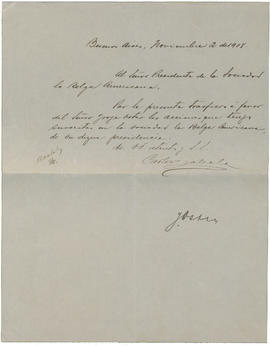 Buenos Aires, Noviembre 2 de 1908
Al Señor Presidente de la Sociedad
la Belga Americana.
Por la presente transfiero á favor
del Señor Jorge Oster las acciones que tengo
suscritas en la sociedad la Belga Americana,
de su digna presidencia.
de Vd atento y S.S.
J. Oster